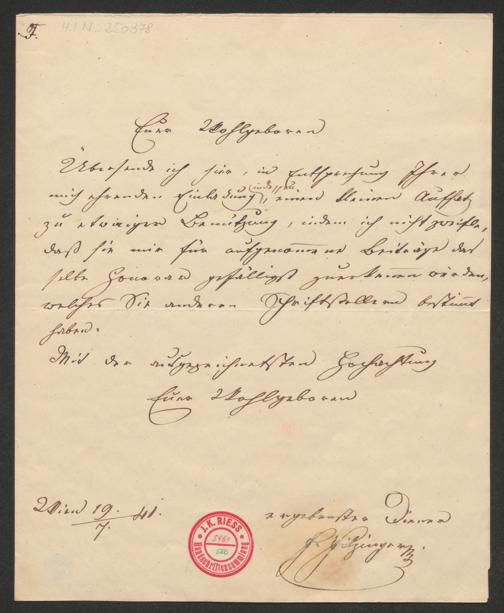 H.I.N. 250378
Euer Wohlgeboren
Übersende ich hier, in Entsprechung Ihrer
mich ehrenden Einladung, einen kleinen Aufsatz
zu etwaiger Benützung, indem ich nicht zweifle,
daß sie mir für aufgenommene Beiträge das
selbe Honorar gefälligst zuerkennen würden,
welches Sie anderen Schriftstellern bestimmt
haben.
Mit der ausgezeichnetsten Hochachtung
Euer Wohlgeboren
Wien 19./7. 41.
ergebenster Diener
J. K. RIESS
Handschriftensammlung